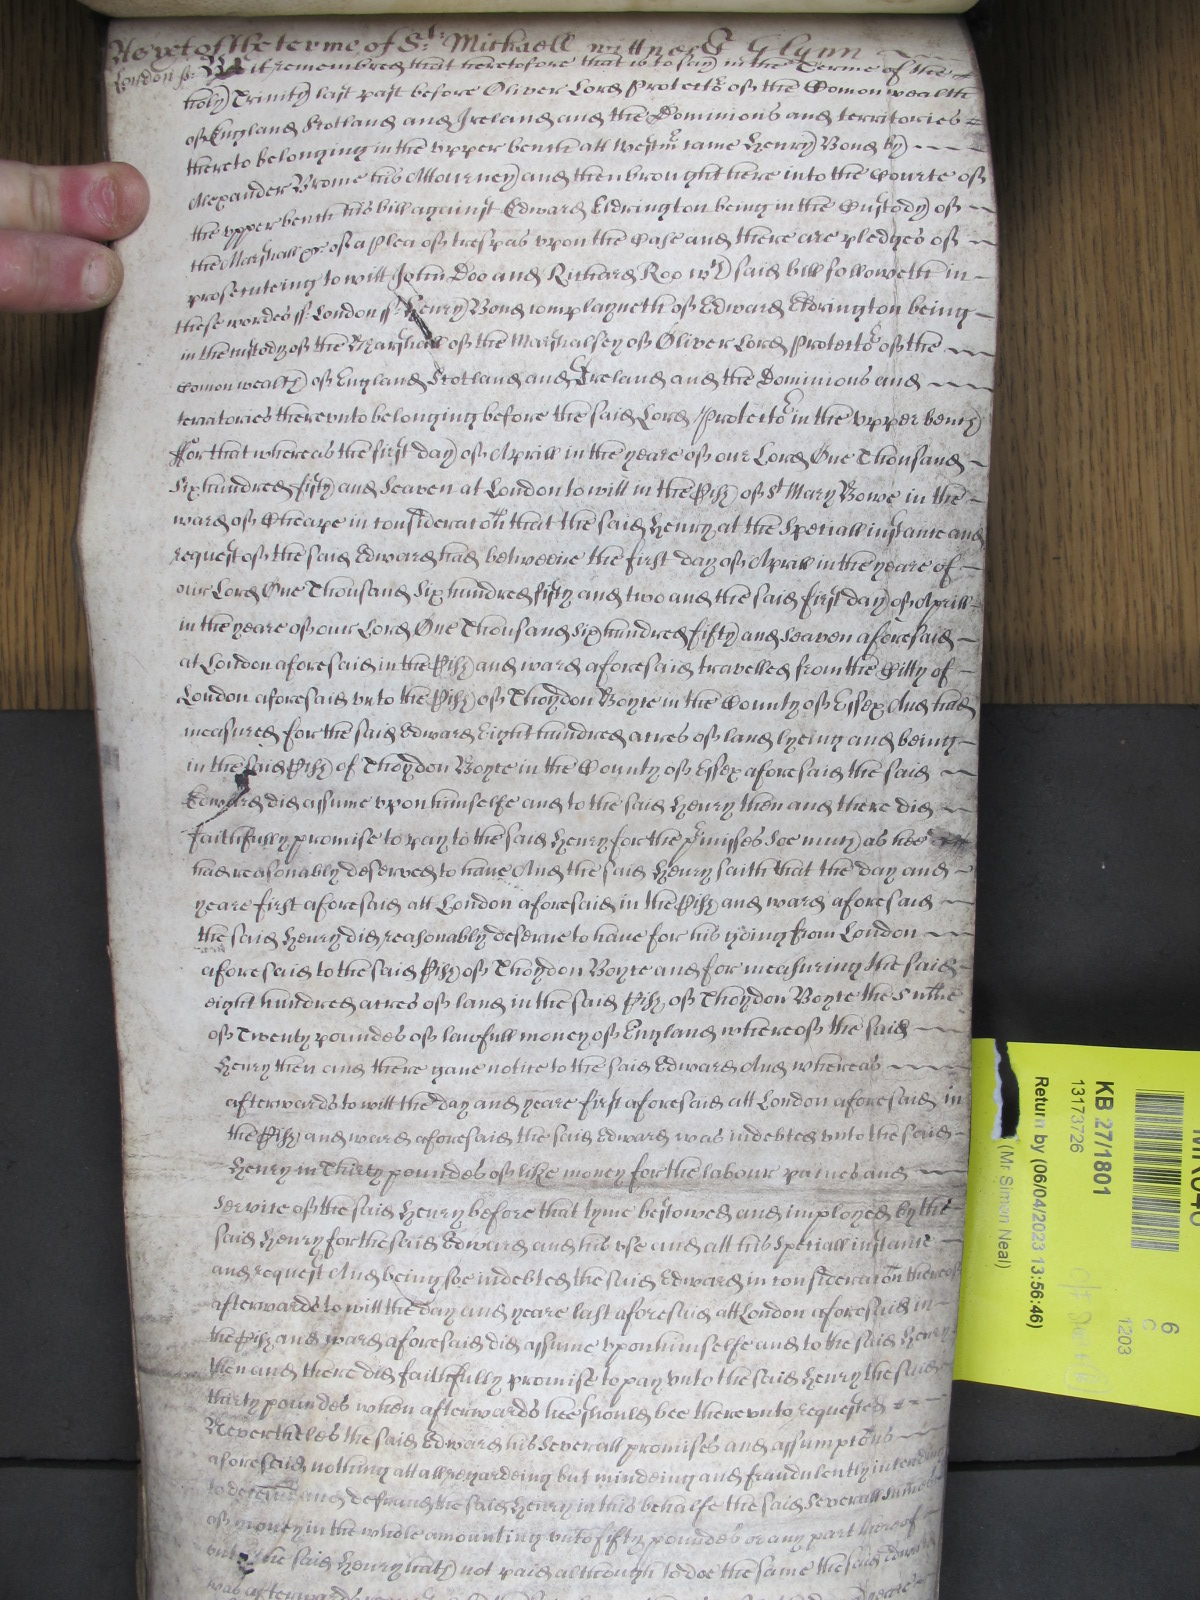 As yet of the terme of St. Michaell wittnes Glynn
London ss: Bee it remembred that heretofore that is to say in the Terme of the
holy Trinity last past before Oliver Lord Protector of the Comonwealth
of England Scotland and Ireland and the Dominions and territories
thereto belonging in the upper bench att Westmr came Henry Bond by
Alexander Brome his Attourney and then brought here into the Courte of
the upper bench his bill against Edward Eldrington being in the Custody of
the Marshall &c of a Plea of trespas upon the Case and there are pledges of
prosecuteing to witt John Doo and Richard Roo wch said bill followeth in
these wordes ss London ss Henry Bond complayneth of Edward Eldrington being
in the custody of the Marshall of the Marshalsey of Oliver Lord Protector of the
Comonwealth of England Scotland and Ireland and the Dominions and
terratories thereunto belonging before the said Lord Protector in the upper bench
ffor that whereas the first day of Aprill in the yeare of our Lord One Thousand
Six hundred fifty and Seaven at London to witt in the Pish of St Mary Bowe in the
ward of Cheape in consideracon that the said Henry at the Speciall instance and
request of the said Edward had betweene the first day of Aprill in the yeare of
our Lord One Thousand Six hundred fifty and two and the said first day of Aprill
in the yeare of our Lord One Thousand Six hundred fifty and Seaven aforesaid
at London aforesaid in the Pish and ward aforesaid travelled from the Citty of
London aforesaid unto the Pish of Thoydon Boyce in the County of Essex And had
measured for the said Edward Eight hundred acres of land lyeing and being
in the said Pish of Thoydon Boyce in the County of Essex aforesaid the said
Edward did assume upon himselfe and to the said Henry then and there did
faithfully promise to pay to the said Henry for the pmisses Soe much as hee
had reasonably deserved to have And the said Henry saith that the day and
yeare first aforesaid att London aforesaid in the Pish and ward aforesaid
the said Henry did reasonably deserve to have for his goeing from London
aforesaid to the said Pish of Thoydon Boyce and for measuring the said
eight hundred acres of land in the said Pish of Thoydon Boyce the Sume
of Twenty poundes of lawfull money of England whereof the said
Henry then and there gave notice to the said Edward And whereas
afterwards to witt the day and yeare first aforesaid att London aforesaid in
the Pish and ward aforesaid the said Edward was indebted unto the said
Henry in Thirty poundes of like money for the labour paines and
Service of the said Henry before that tyme bestowed and imployed by the
said Henry for the said Edward and his use and att his Speciall instance
and request And being soe indebted the said Edward in consideracon thereof
afterwards to witt the day and yeare last aforesaid att London aforesaid in
the Pish and ward aforesaid did assume upon himselfe and to the said Henry
then and there did faithfully promise to pay unto the said Henry the said
thirty poundes when afterwards hee should bee thereunto requested
Nevertheles the said Edward his Severall promises and assumptions
aforesaid nothing att all regardeing but mindeing and fraudulently intending
to deceive and defraud the said Henry in this behalfe the said Severall sumes
of money in the whole amounting unto fifty poundes or any part thereof
unto the said Henry hath not paid although to doe the same the said Edward
was afterwards
KB 27/1801
13173726
Return by (06/04/2023 13:56:46)
(Mr Simon Neal)
6
C
1203